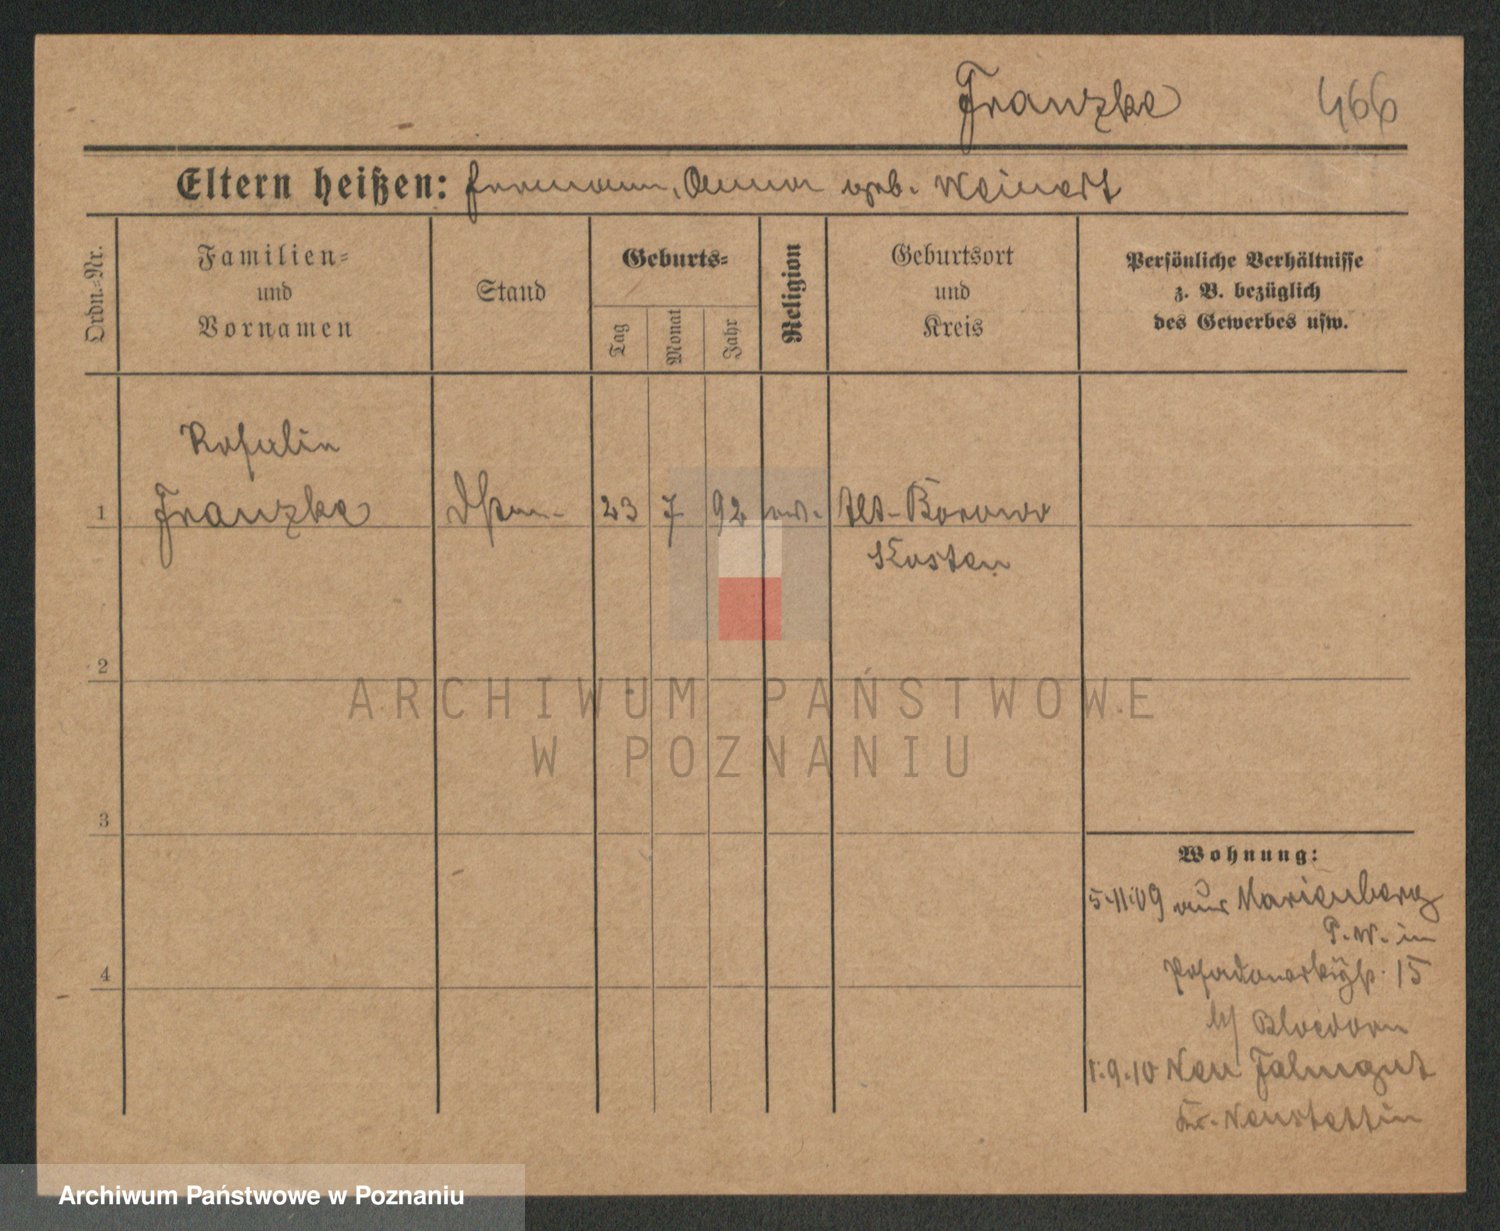 Franzke 466
Eltern heißen: Hermann, Anna geb. Weinert
Ordn.-Nr.
Familien-
und
Vornamen
Stand
Geburts-
Tag
Monat
Jahr
Religion
Geburtsort
und
Kreis
Persönliche Verhältnisse
z. B. bezüglich
des Gewerbes usw.
Rosalie
1 Franzke 23 7 92 Alt-Borowo
Kosten
2
3
4
Wohnung:
5.11.09 aus Marienberg
P.W. in
15
b/ Bloedorn
1.9.10 Neu
Kr. Neustettin
ARCHIWUM PAŃSTWOWE
W POZNANIU
Archiwum Państwowe w Poznaniu